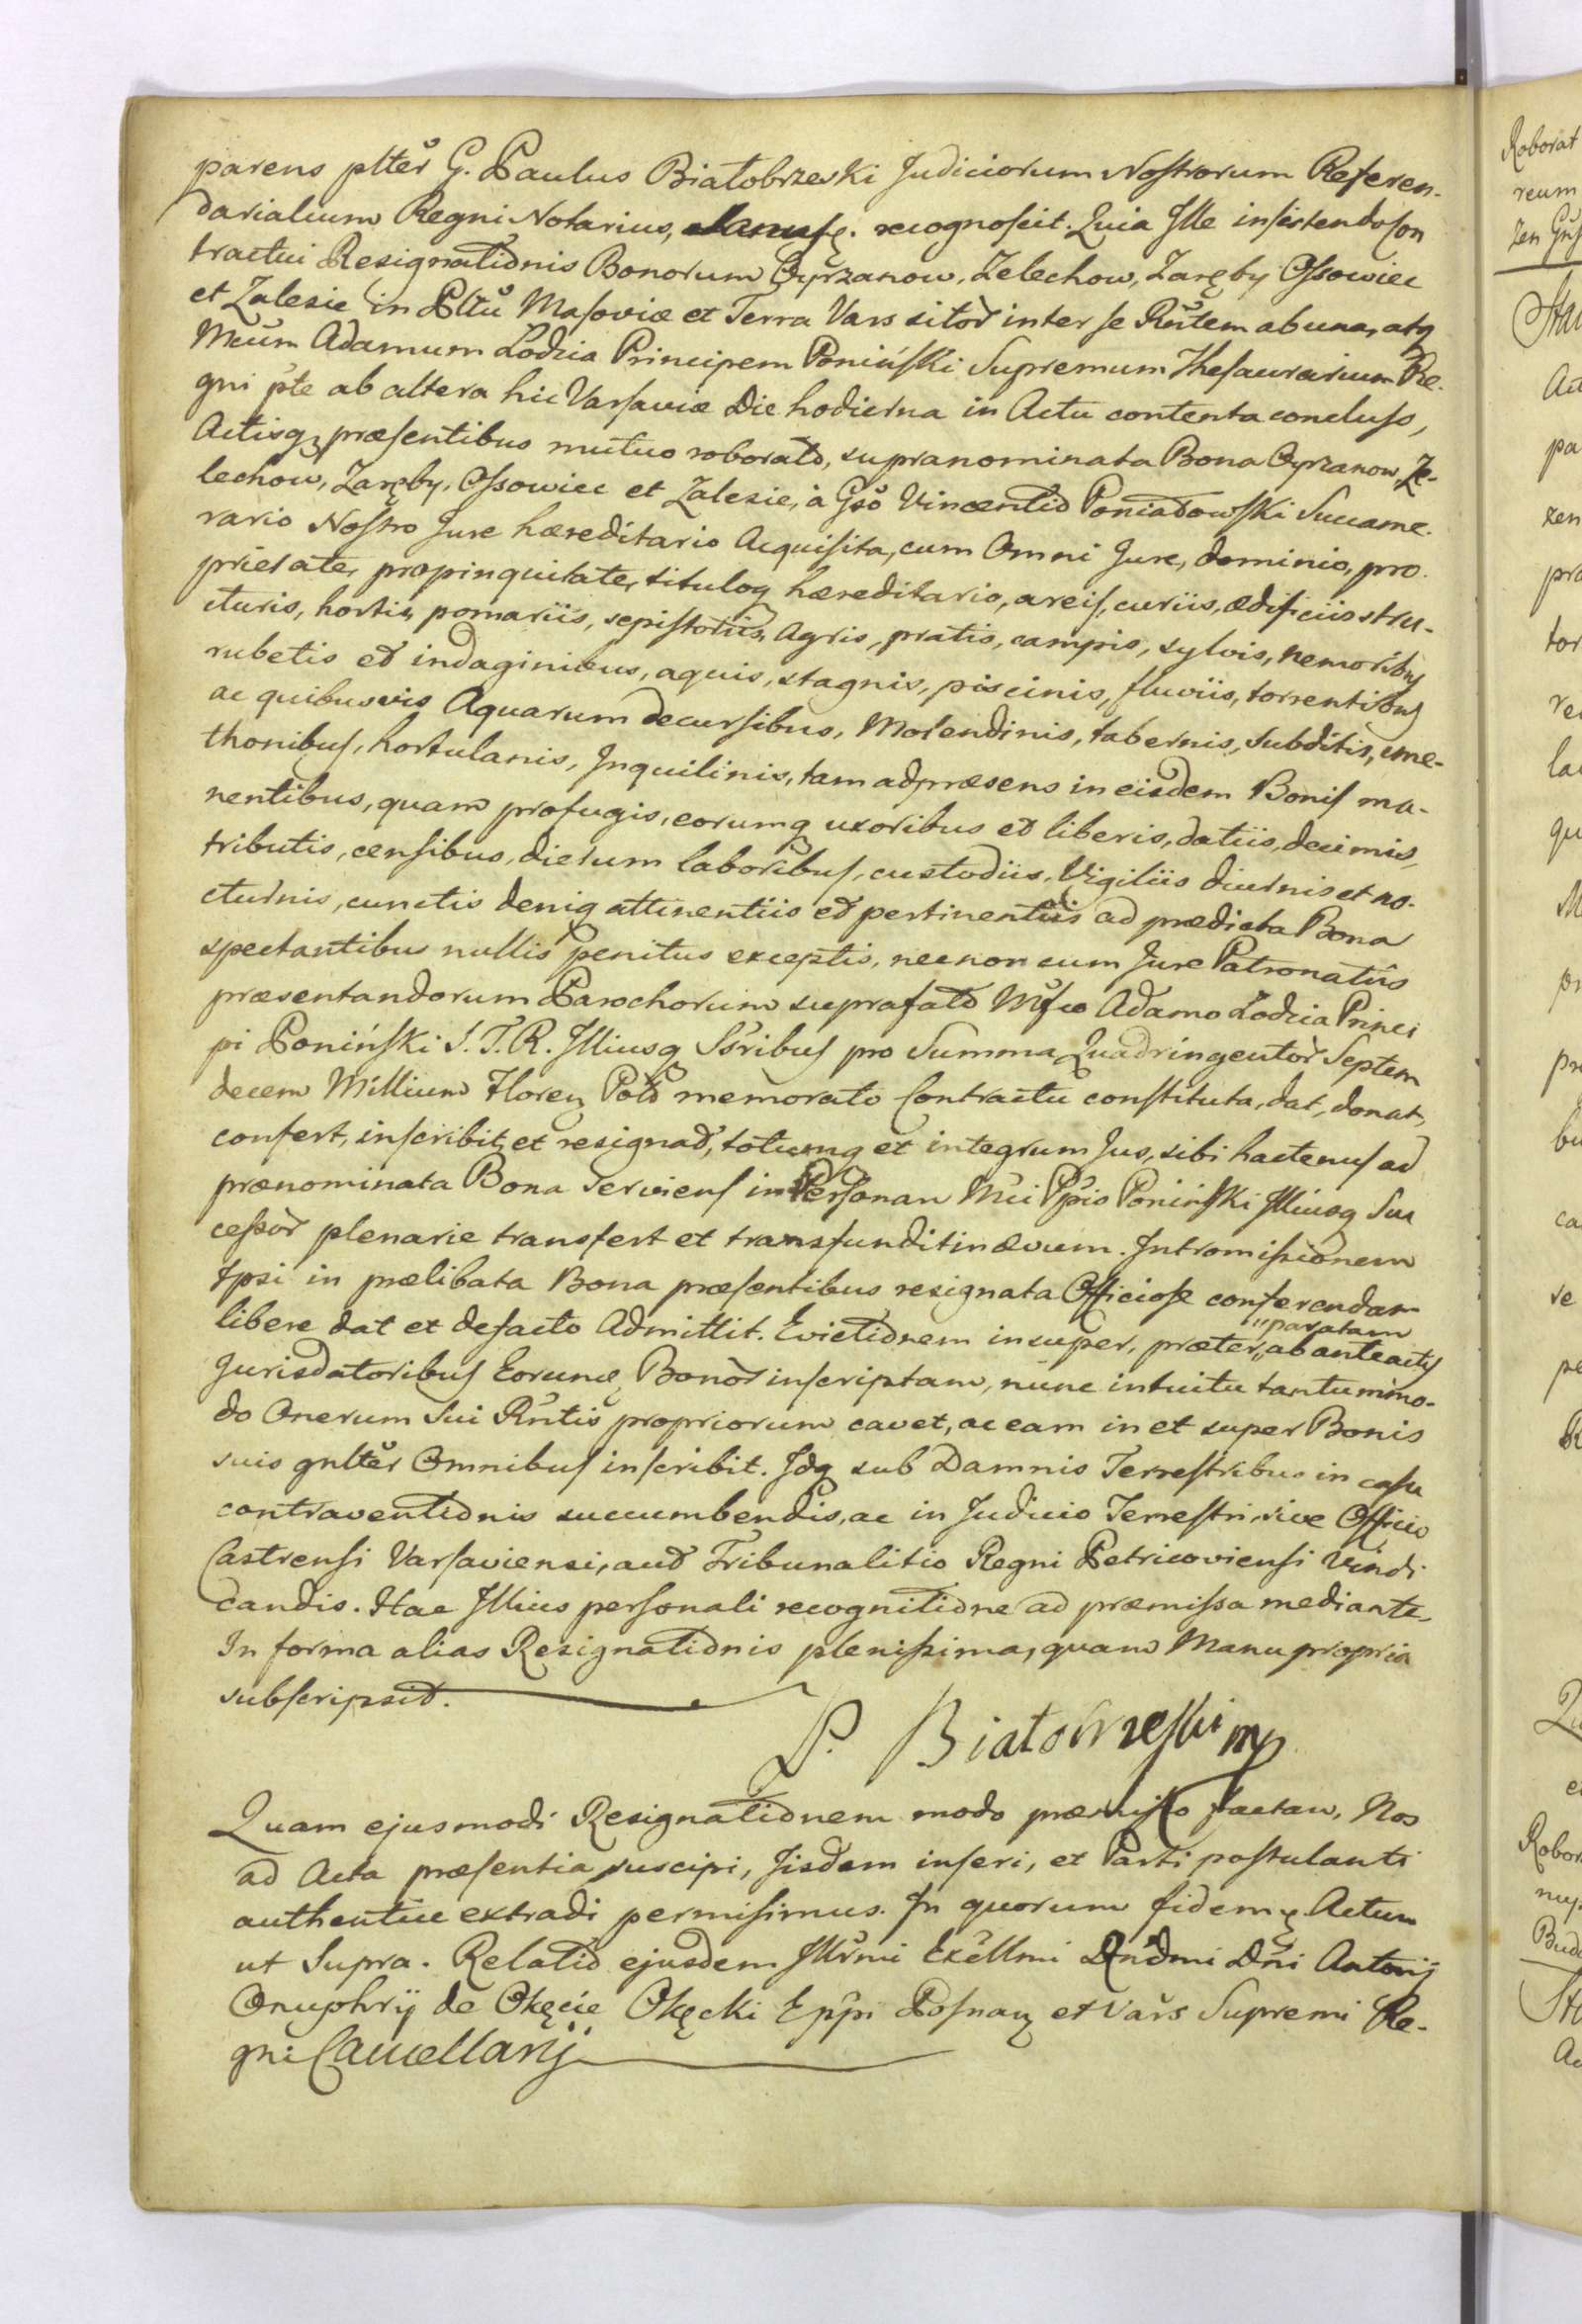 parens plter G. Paulus Białobrzeski Judiciorum Nostrorum Referen-
darialium Regni Notarius, recognoscit. Quia Ille insistendo Con
tractui Resignationis Bonorum Oyrzanow, Zelechow, Zaręby Ossowiec
et Zalesie in Pltu Masoviæ et Terra Vars sitor inter se Rntem ab una, atq
Mcum Adamum Lodzia Principem Poniński Supremum Thesaurarium Re-
gni pte ab altera hic Varsaviæ Die hodierna in Actu contenta concluso,
Actisq præsentibus mutuo roborato, supranominata Bona Oyrzanow, Ze-
lechow, Zaręby, Ossowiec et Zalesie, à Gso Vincentio Poniadowski Succame-
rario Nostro Jure hæreditario Acquisita, cum Omni Jure, dominio, pro-
prietate, propinquitate, tituloq hæreditario, areis, curiis, ædificiis stru-
cturis, hortis, pomariis, Agris, pratis, campis, sylvis, nemoribus
rubetis et indaginibus, aquis, stagnis, piscinis, fluviis, torrentibus
ac quibusvis Aquarum decursibus, Molendinis, tabernis, Subditis, cme-
thonibus, hortulanis, Inquilinis, tam ad præsens in eisdem Bonis ma-
nentibus, quam profugis, eorumq uxoribus et liberis, datiis, decimis,
tributis, censibus, dierum laboribus, custodiis, Vigiliis diurnis et no-
cturnis, cunctis deniq attinentiis et pertinentiis ad prædicta Bona
spectantibus nullis penitus exceptis, necnon cum Jure Patronatûs
præsentandorum Parochorum suprafato Mfco Adamo Lodzia Princi
pi Poniński S. T. R. Illiusq Ssribus pro Summa Quadringentor Septem
decem Millium Floren Pol memorato Contractu constituta, dat, donat,
confert, inscribit, et resignat, totumq et integrum Jus, sibi hactenus ad
prænominata Bona serviens in Personam Mci Ppis Poniński Illiusq Suc
cessor plenarie transfert et transfundit in ævum. Intromissionem
Ipsi in prælibata Bona præsentibus resignata Officiose conferendam
libere dat et defacto Admittit. Evictionem insuper, præter „paratam ab anteactis
Jurisdatoribus Eorund Bonor inscriptam, nunc intuitu tantummo-
do Onerum Sui Rntis propriorum cavet, ac eam in et super Bonis
suis gnlter Omnibus inscribit. Idq sub Damnis Terrestribus in casu
contraventionis succumbendis, ac in Judicio Terrestri, sive Officio
Castrensi Varsaviensi, aut Tribunalitio Regni Petricoviensi Vindi
candis. Hac Illius personali recognitione ad præmissa mediante.
In forma alias Resignationis plenissima, quam Manu propria
subscripsit.
P. Białobrzeski mp
Quam ejusmodi Resignationem modo præmisso factam, Nos
ad Acta præsentia suscipi, Iisdem inseri, et Parti postulanti
authentice extradi permisimus. In quorum fidem Actum
ut Supra. Relatio ejusdem Illrmi Excllmi Dndmi Dni Antonij
Onuphrij de Okęcie Okęcki Eppi Posnan et Vars Supremi Re-
gni Cancellarij